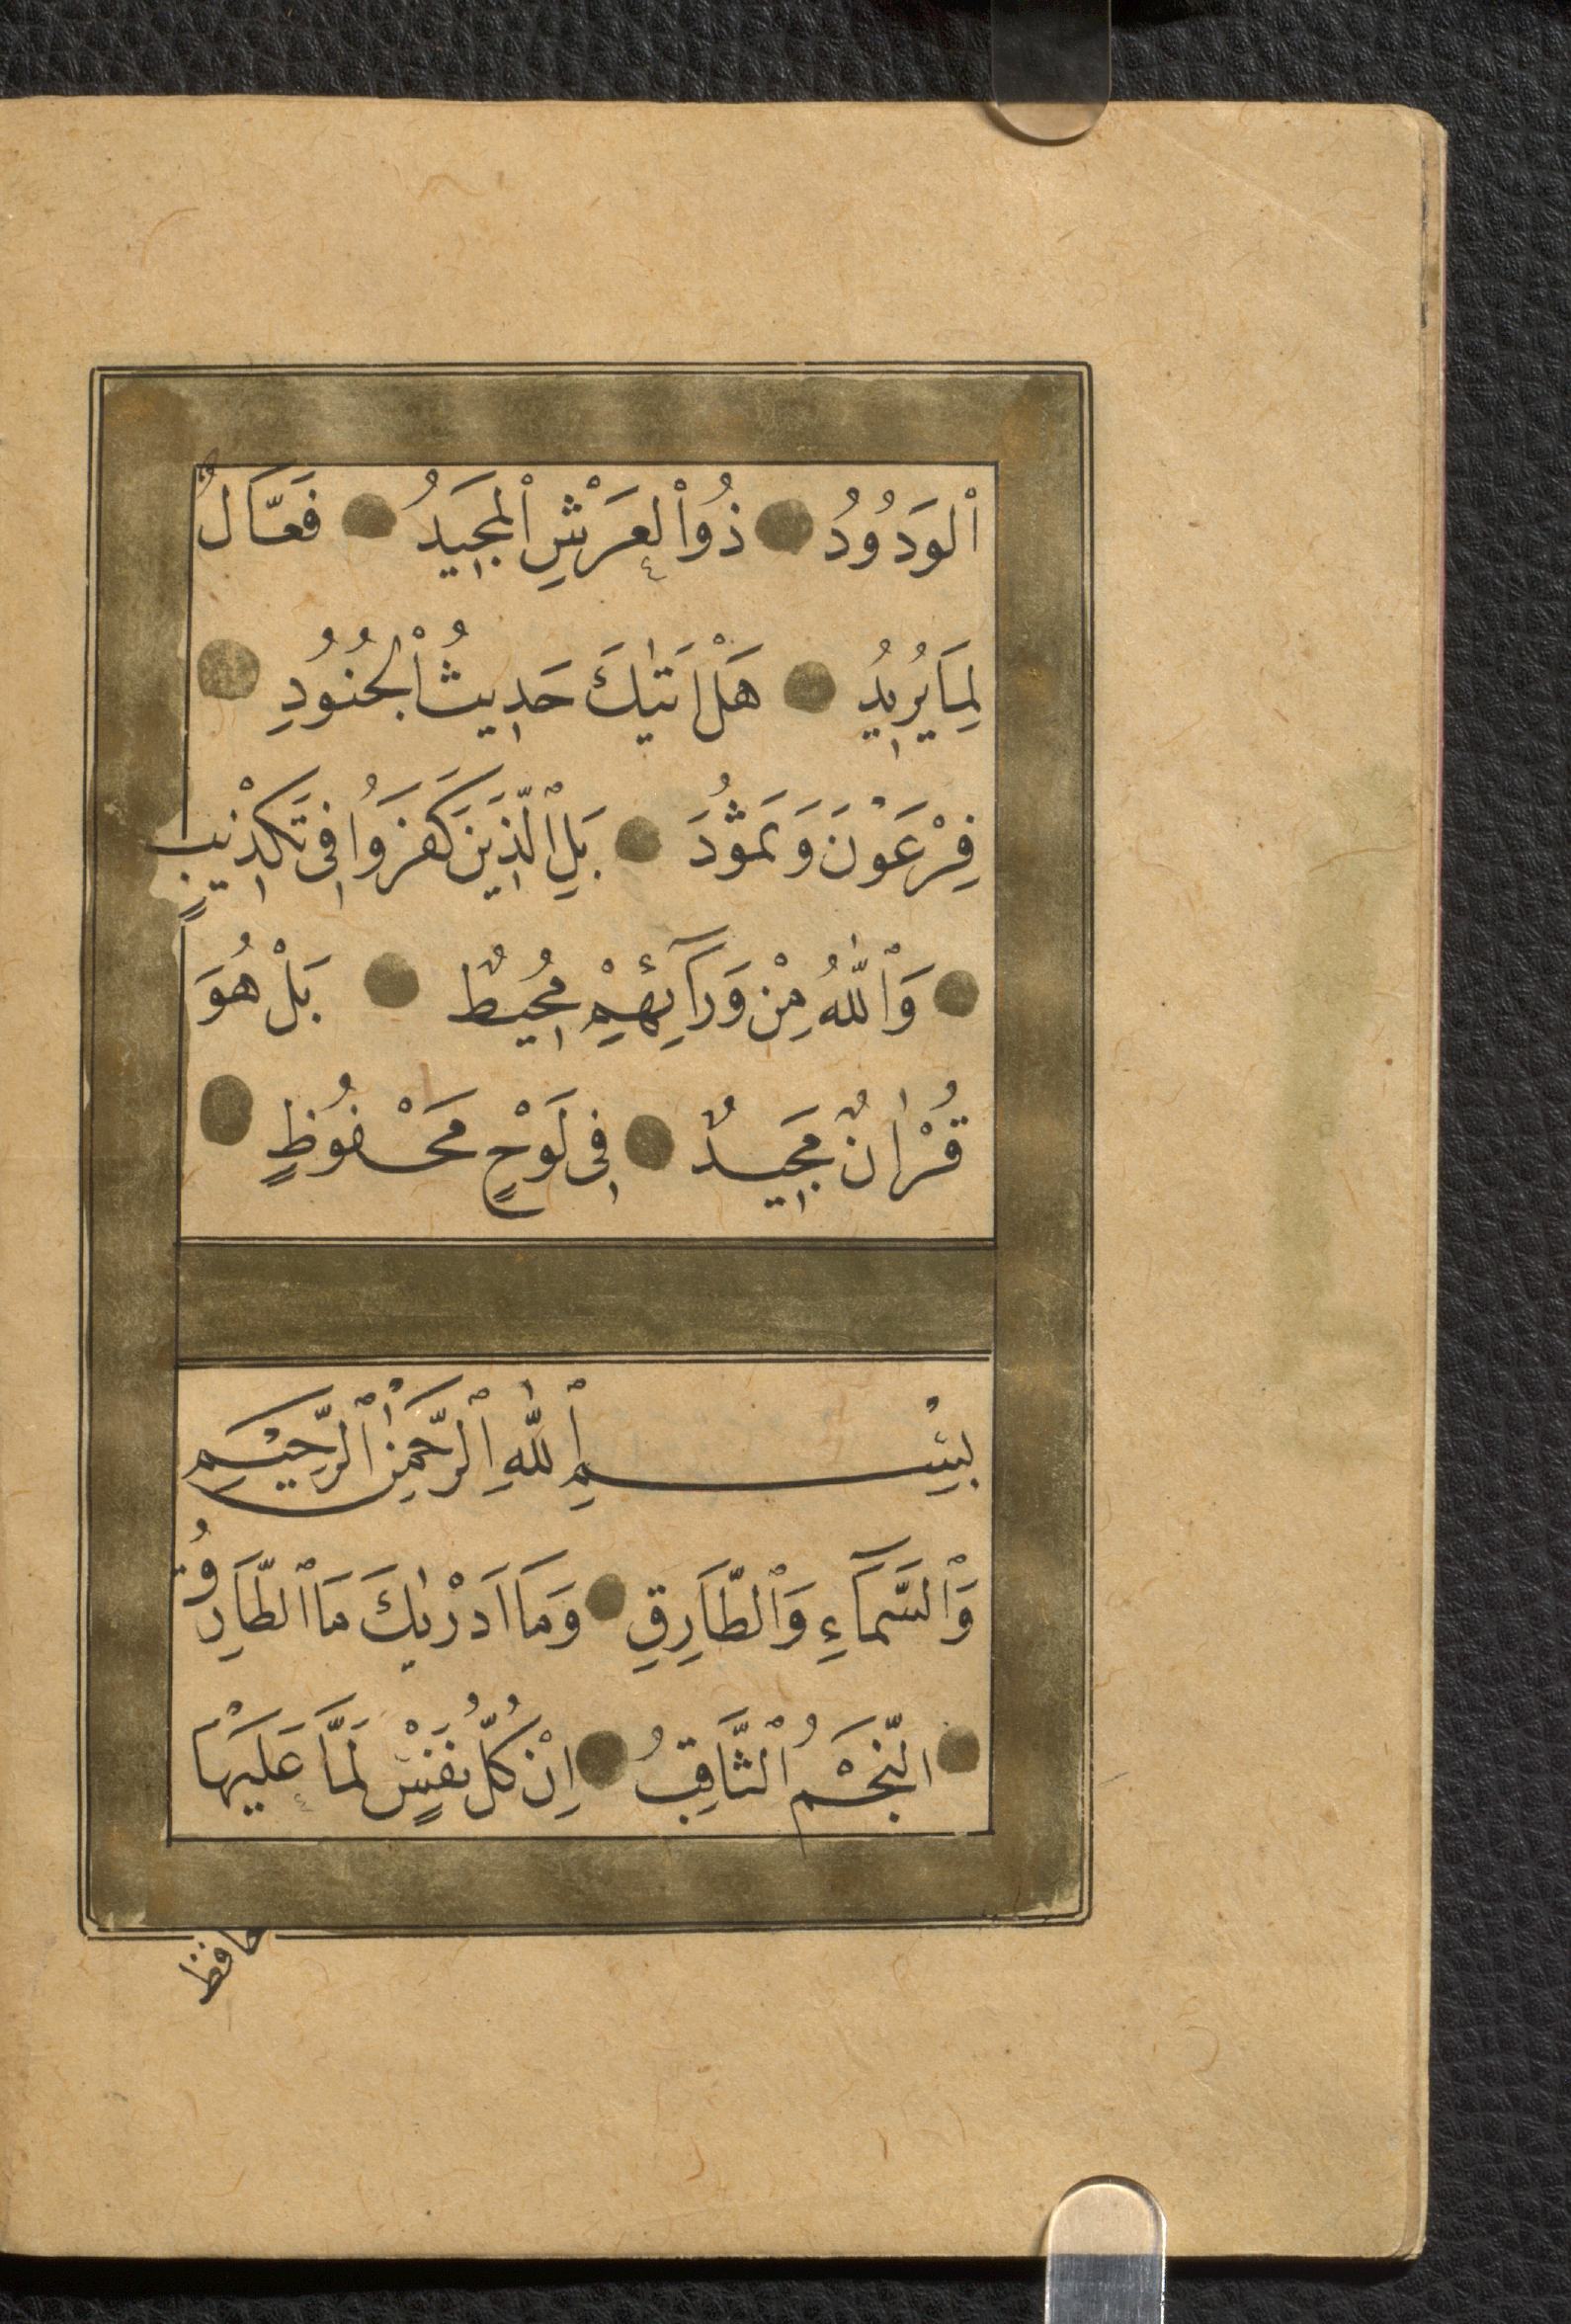 ٱلوَدُودُ ذُواْلعَرْشِ ٱلْمَجِيدُ فَعَّالٌ
لِمَا يُرِيدُ هَلْ اَتٰيكَ حَدِيثُ اْلجُنُودِ
فِرْعَوْنَ وَثَمُودَ بَلِ ٱلَّذِينَ كَفَرُوا فِى تَكْذِيبٍ
وَٱللّٰهُ مِنْ وَرَآئِهِمْ مُحِيطٌ بَلْ هُوَ
قُرْاٰنٌ مَجِيدٌ فِى لَوْحٍ مَحْفُوظٍ
بِسْمِ ٱللّٰهِ ٱلرَّحْمٰنِ ٱلرَّحِيمِ
وَٱلسَّمَآءِ وَٱلطَّارِقِ وَمَا اَدْرٰيكَ مَا ٱلطَّارِقُ
النَّجْمُ ٱلثَّاقِبُ اِنْ كُلُّ نَفْسٍ لَمَّا عَلَيْهَا
حافظ